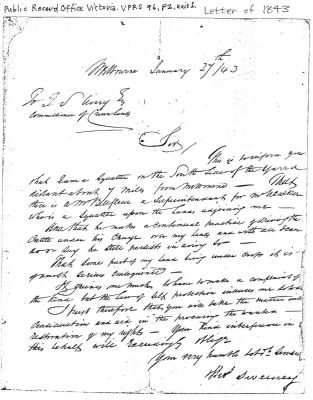 Public Record Office Victoria. VPRS 96, P2, Unit 1
Letter of 1843
Melbourne January 27th /43
To Airey Esq
Commissioner of Crown Lands
Sir,
This is to inform you
that I am a Squatter on the South Side of the Yarra
distant about 7 miles from Melbourne — That
there is a Mr a Superintendent for Mr
who is a Squatter upon the Lands adjoining me
And that he make a continual practice of
Cattle under his charge over my land and
or say he still persists in so —
That some part of my land being under crop it is
of most serious consequence —
It giving me much to have to make a complaint of
the kind but the law of self protection induces me to do so
I trust therefore that you will take the matter into
consideration and aid in the procuring the wanted —
restoration of my rights — Your kind interference in
this behalf will exceedingly oblige
Your very humble Servt
Sweeney